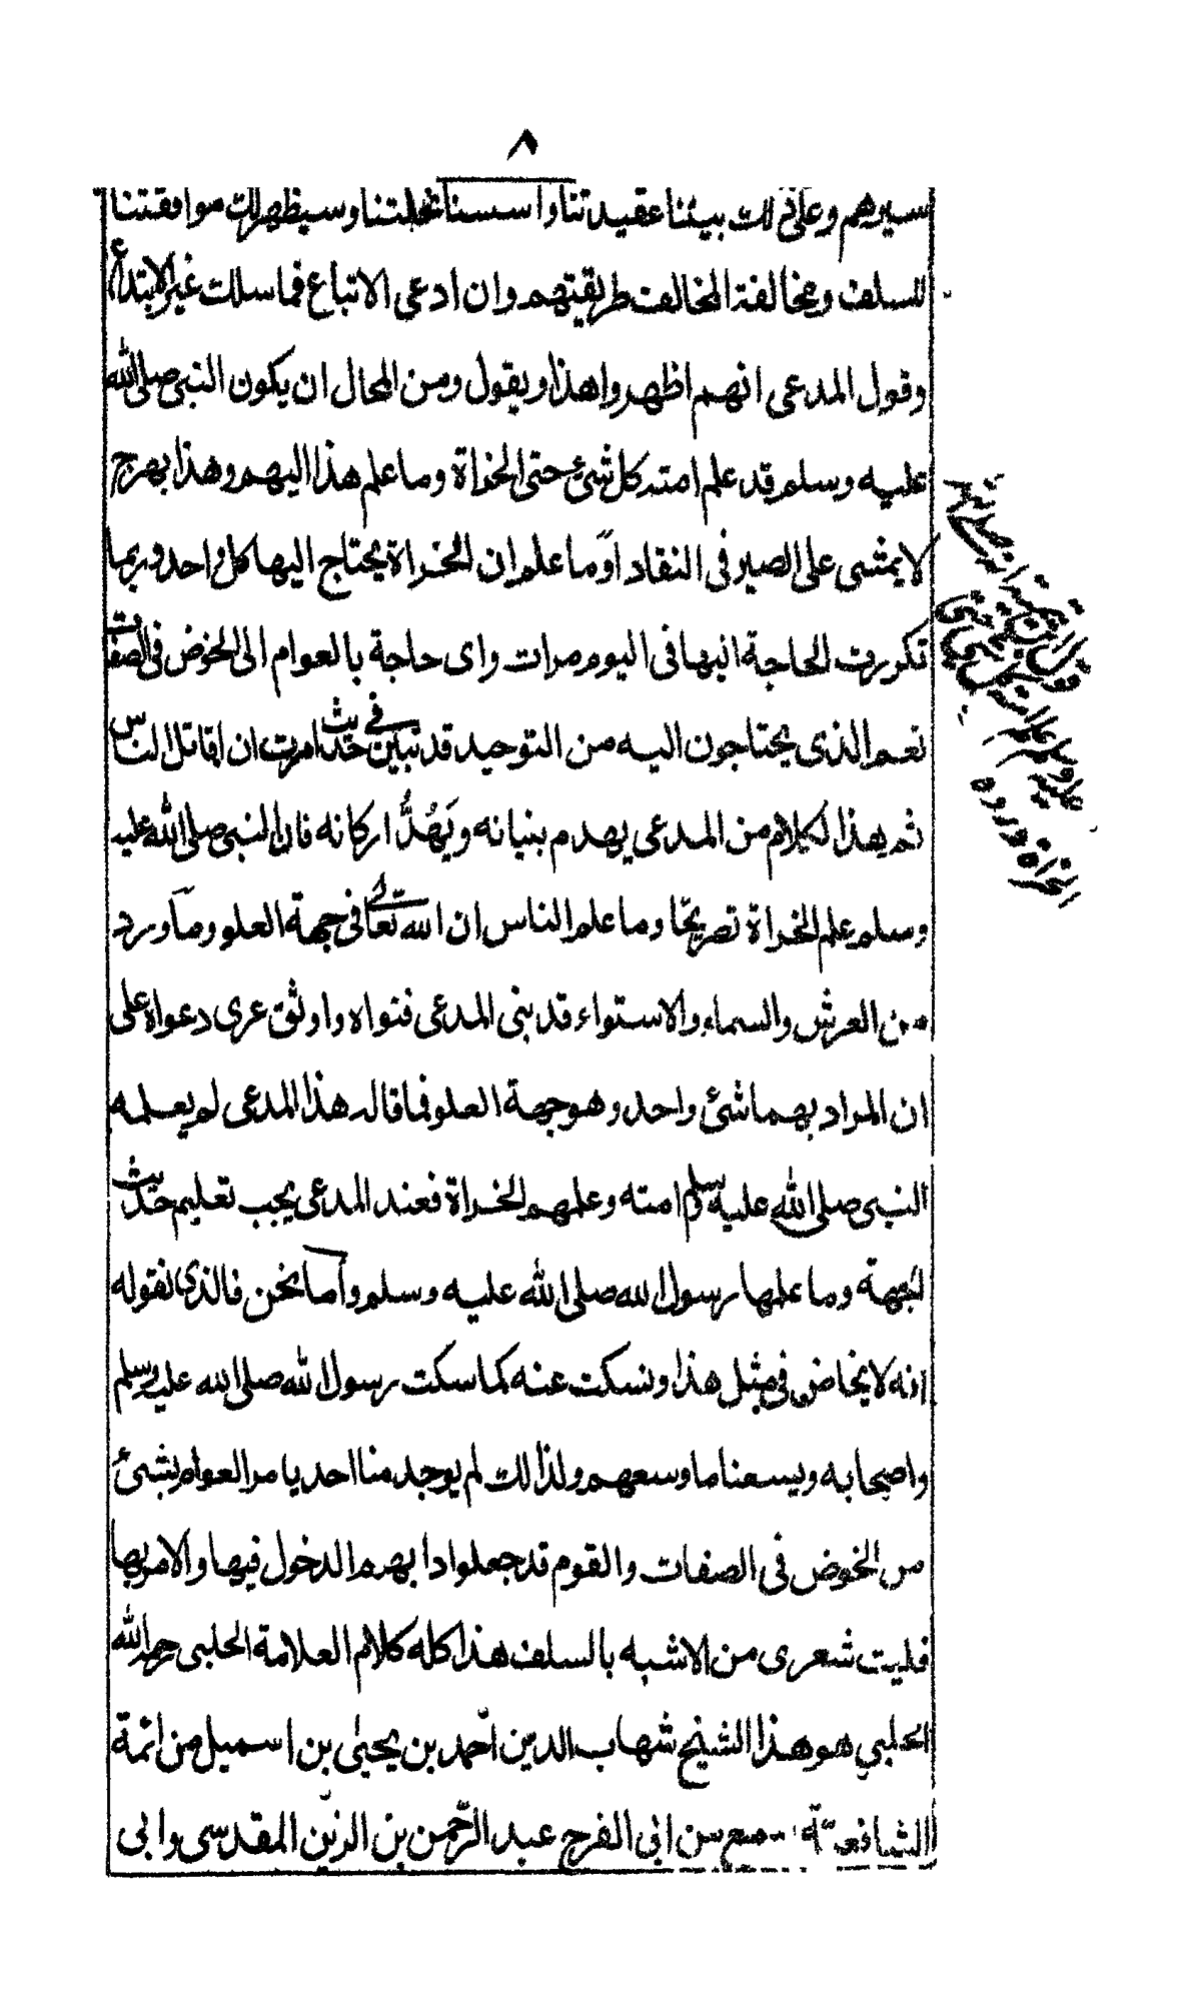 ٨
سيرهم وعلى ذلك بيننا عقيدتنا واسسنا نحلتنا وسيظهر لك موافقتنا
للسلف ومخالفة المخالف طريقتهم وان ادعى الاتباع فما سلك غير الابتداع
وقول المدعى انهم اظهروا هذا ويقول ومن المحال ان يكون النبى صلى الله
عليه وسلم قد علم امته كل شئ حتى الخراة وما علم هذا اليهم وهذا بهرج
لا يمشى على الصير فى النقاد اوما علم ان الخراة يحتاج اليها كل واحد وربما
تكررت الحاجة اليها فى اليوم مرات واى حاجة بالعوام الى الخوض فى الصفات
نعم الذى يحتاجون اليه من التوحيد قد تبين فى حديث امرت ان اقاتل الناس
ثم هذا الكلام من المدعى يهدم بنيانه ويَهُدُّ اركانه فان النبى صلى الله عليه
وسلم علم الخراة تصريحا وما علم الناس ان الله تعالى فى جهة العلو وما ورد
من العرش والسماء والاستواء قد بنى المدعى فتواه واوثق عرى دعواه على
ان المراد بهما شئ واحد وهو جهة العلو فما قاله هذا المدعى لم يعلمه
النبى صلى الله عليه وسلم امته وعلمهم الخراة فعند المدعى يجب تعليم حديث
الجهة وما علمها رسول الله صلى الله عليه وسلم وأما نحن فالذى نقوله
انه لا يخاض فى مثل هذا ونسكت عنه كما سكت رسول الله صلى الله عليه وسلم
واصحابه ويسعنا ما وسعهم ولذلك لم يوجد منا احد يامر العوام بشئ
من الخوض فى الصفات والقوم قد جعلوا دابهم الدخول فيها والامر بها
فليت شعرى من الاشبه بالسلف هذا كله كلام العلامة الحلبى رحمه الله
الحلبي هو هذا الشيخ شهاب الدين احمد بن يحيىٰ بن اسمعيل من ائمة
الشافعية سمع من ابى الفرج عبد الرّحمن بن الزين المقدسى وابى